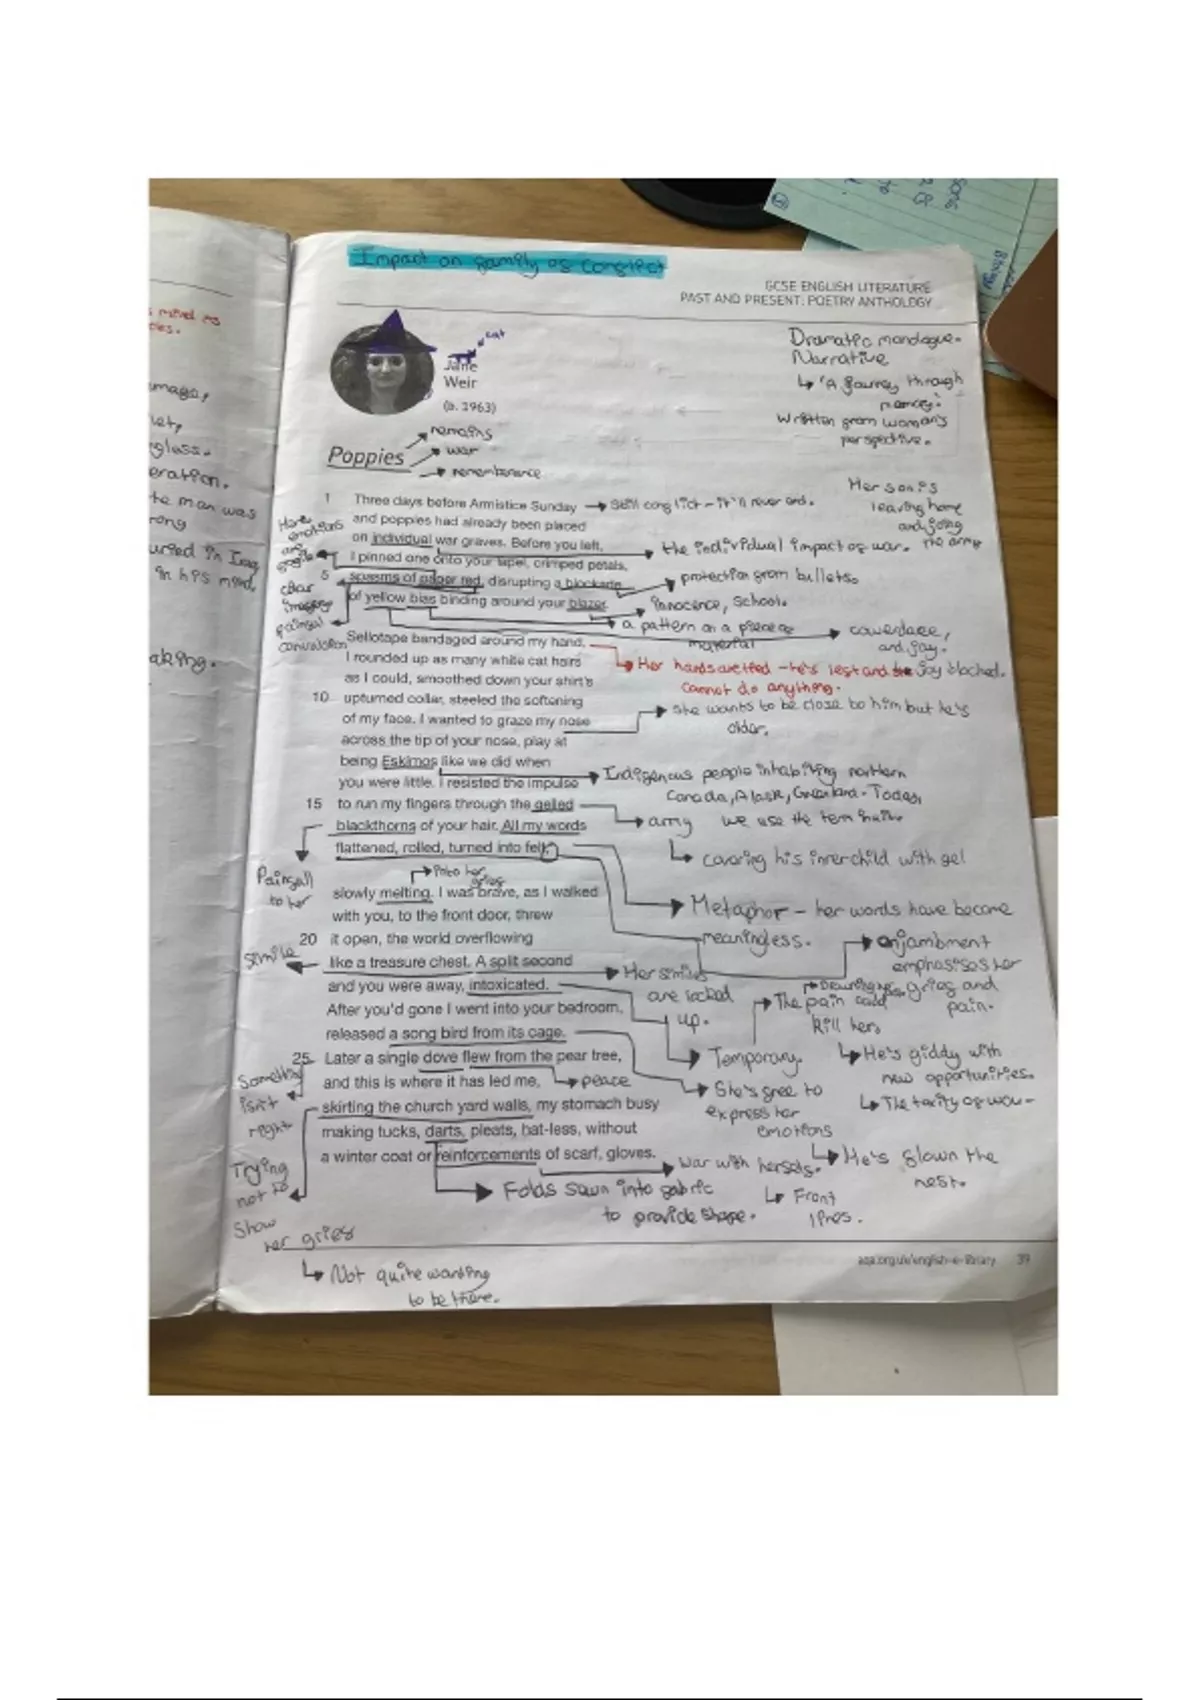 Impact on family of conflict
GCSE ENGLISH LITERATURE
PAST AND PRESENT: POETRY ANTHOLOGY
Dramatic monologue.
Narrative
'A journey through
memory.'
Written from woman's
perspective.
cat
Jane
Weir
(b. 1963)
Poppies
remains
war
rememberence
Her son is
leaving home
and going
the army
1 Three days before Armistice Sunday
still conflict - it'll never end.
and poppies had already been placed
on individual war graves. Before you left,
the individual impact of war.
I pinned one onto your lapel, crimped petals,
5 spasms of paper red, disrupting a blockade
protection from bullets.
of yellow bias binding around your blazer.
innocence, school.
a pattern on a piece of
material
cowerdace,
and joy.
joy blocked.
Sellotape bandaged around my hand,
Her hands are tied - he's left and she
cannot do anything.
I rounded up as many white cat hairs
as I could, smoothed down your shirt's
10 upturned collar, steeled the softening
of my face. I wanted to graze my nose
she wants to be close to him but he's
older.
across the tip of your nose, play at
being Eskimos like we did when
Indigenous people inhabiting northern
Canada, Alask, Greenland. Today,
we use the term Inuit.
you were little. I resisted the impulse
15 to run my fingers through the gelled
army
covering his inner child with gel
blackthorns of your hair. All my words
Painfull
to her
flattened, rolled, turned into felt,
Metaphor - her words have become
meaningless.
enjambment
emphasises her
grief and
pain.
into her
grief
slowly melting. I was brave, as I walked
with you, to the front door, threw
20 it open, the world overflowing
simile
like a treasure chest. A split second
Her smiles
are locked
up.
and you were away, intoxicated.
The pain could
kill her,
Temporary.
He's giddy with
new opportunities.
After you'd gone I went into your bedroom,
released a song bird from its cage.
She's free to
express her
emotions
He's flown the
nest.
25 Later a single dove flew from the pear tree,
Something
isn't
right
and this is where it has led me,
peace
skirting the church yard walls, my stomach busy
Trying
not to
show
her grief
Not quite wanting
to be there.
making tucks, darts, pleats, hat-less, without
a winter coat or reinforcements of scarf, gloves.
war with herself.
Front
lines.
Folds sewn into fabric
to provide shape.
aqa.org.uk/english-e-library 39